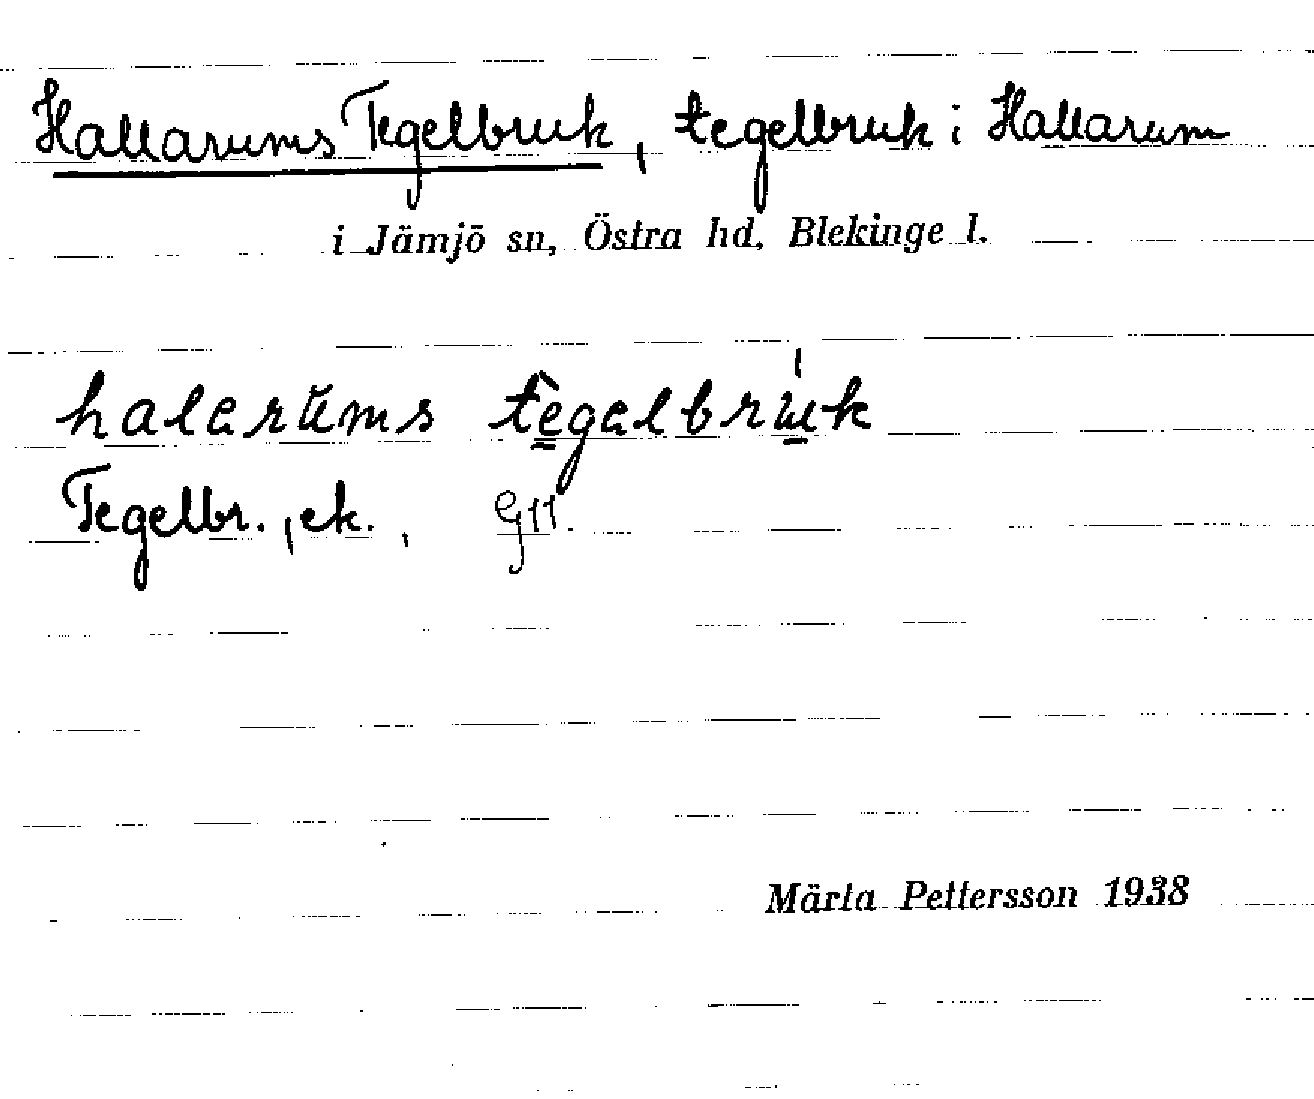 Hallarums Tegelbruk, tegelbruk i Hallarum
i Jämjö sn, Östra hd, Blekinge l.
halarŭms tègalbru̍k
Tegelbr., ek., G11.
Märta Pettersson 1938